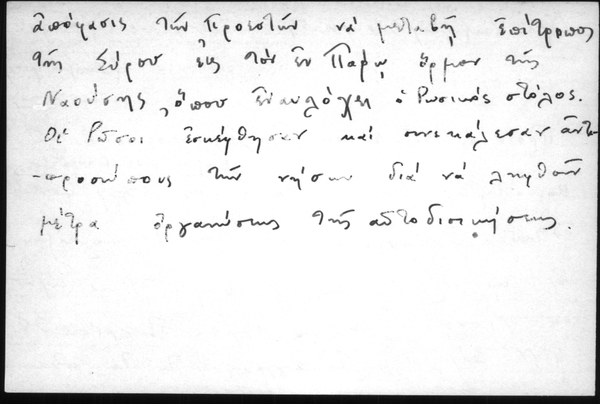 ἀπόφασις τῶν Προεστῶν νά μεταβῇ ἐπίτροπος
τῆς Σύρου εἰς τόν ἐν Πάρῳ ὅρμον τῆς
Ναούσης, ὅπου ἐναυλόχει ὁ Ρωσικός στόλος.
Οἱ Ρῶσοι ἐσκέφθησαν καί συνεκάλεσαν ἀντι-
-προσώπους τῶν νήσων διά νά ληφθοῦν
μέτρα ὀργανώσεως τῆς αὐτοδιοικήσεως.